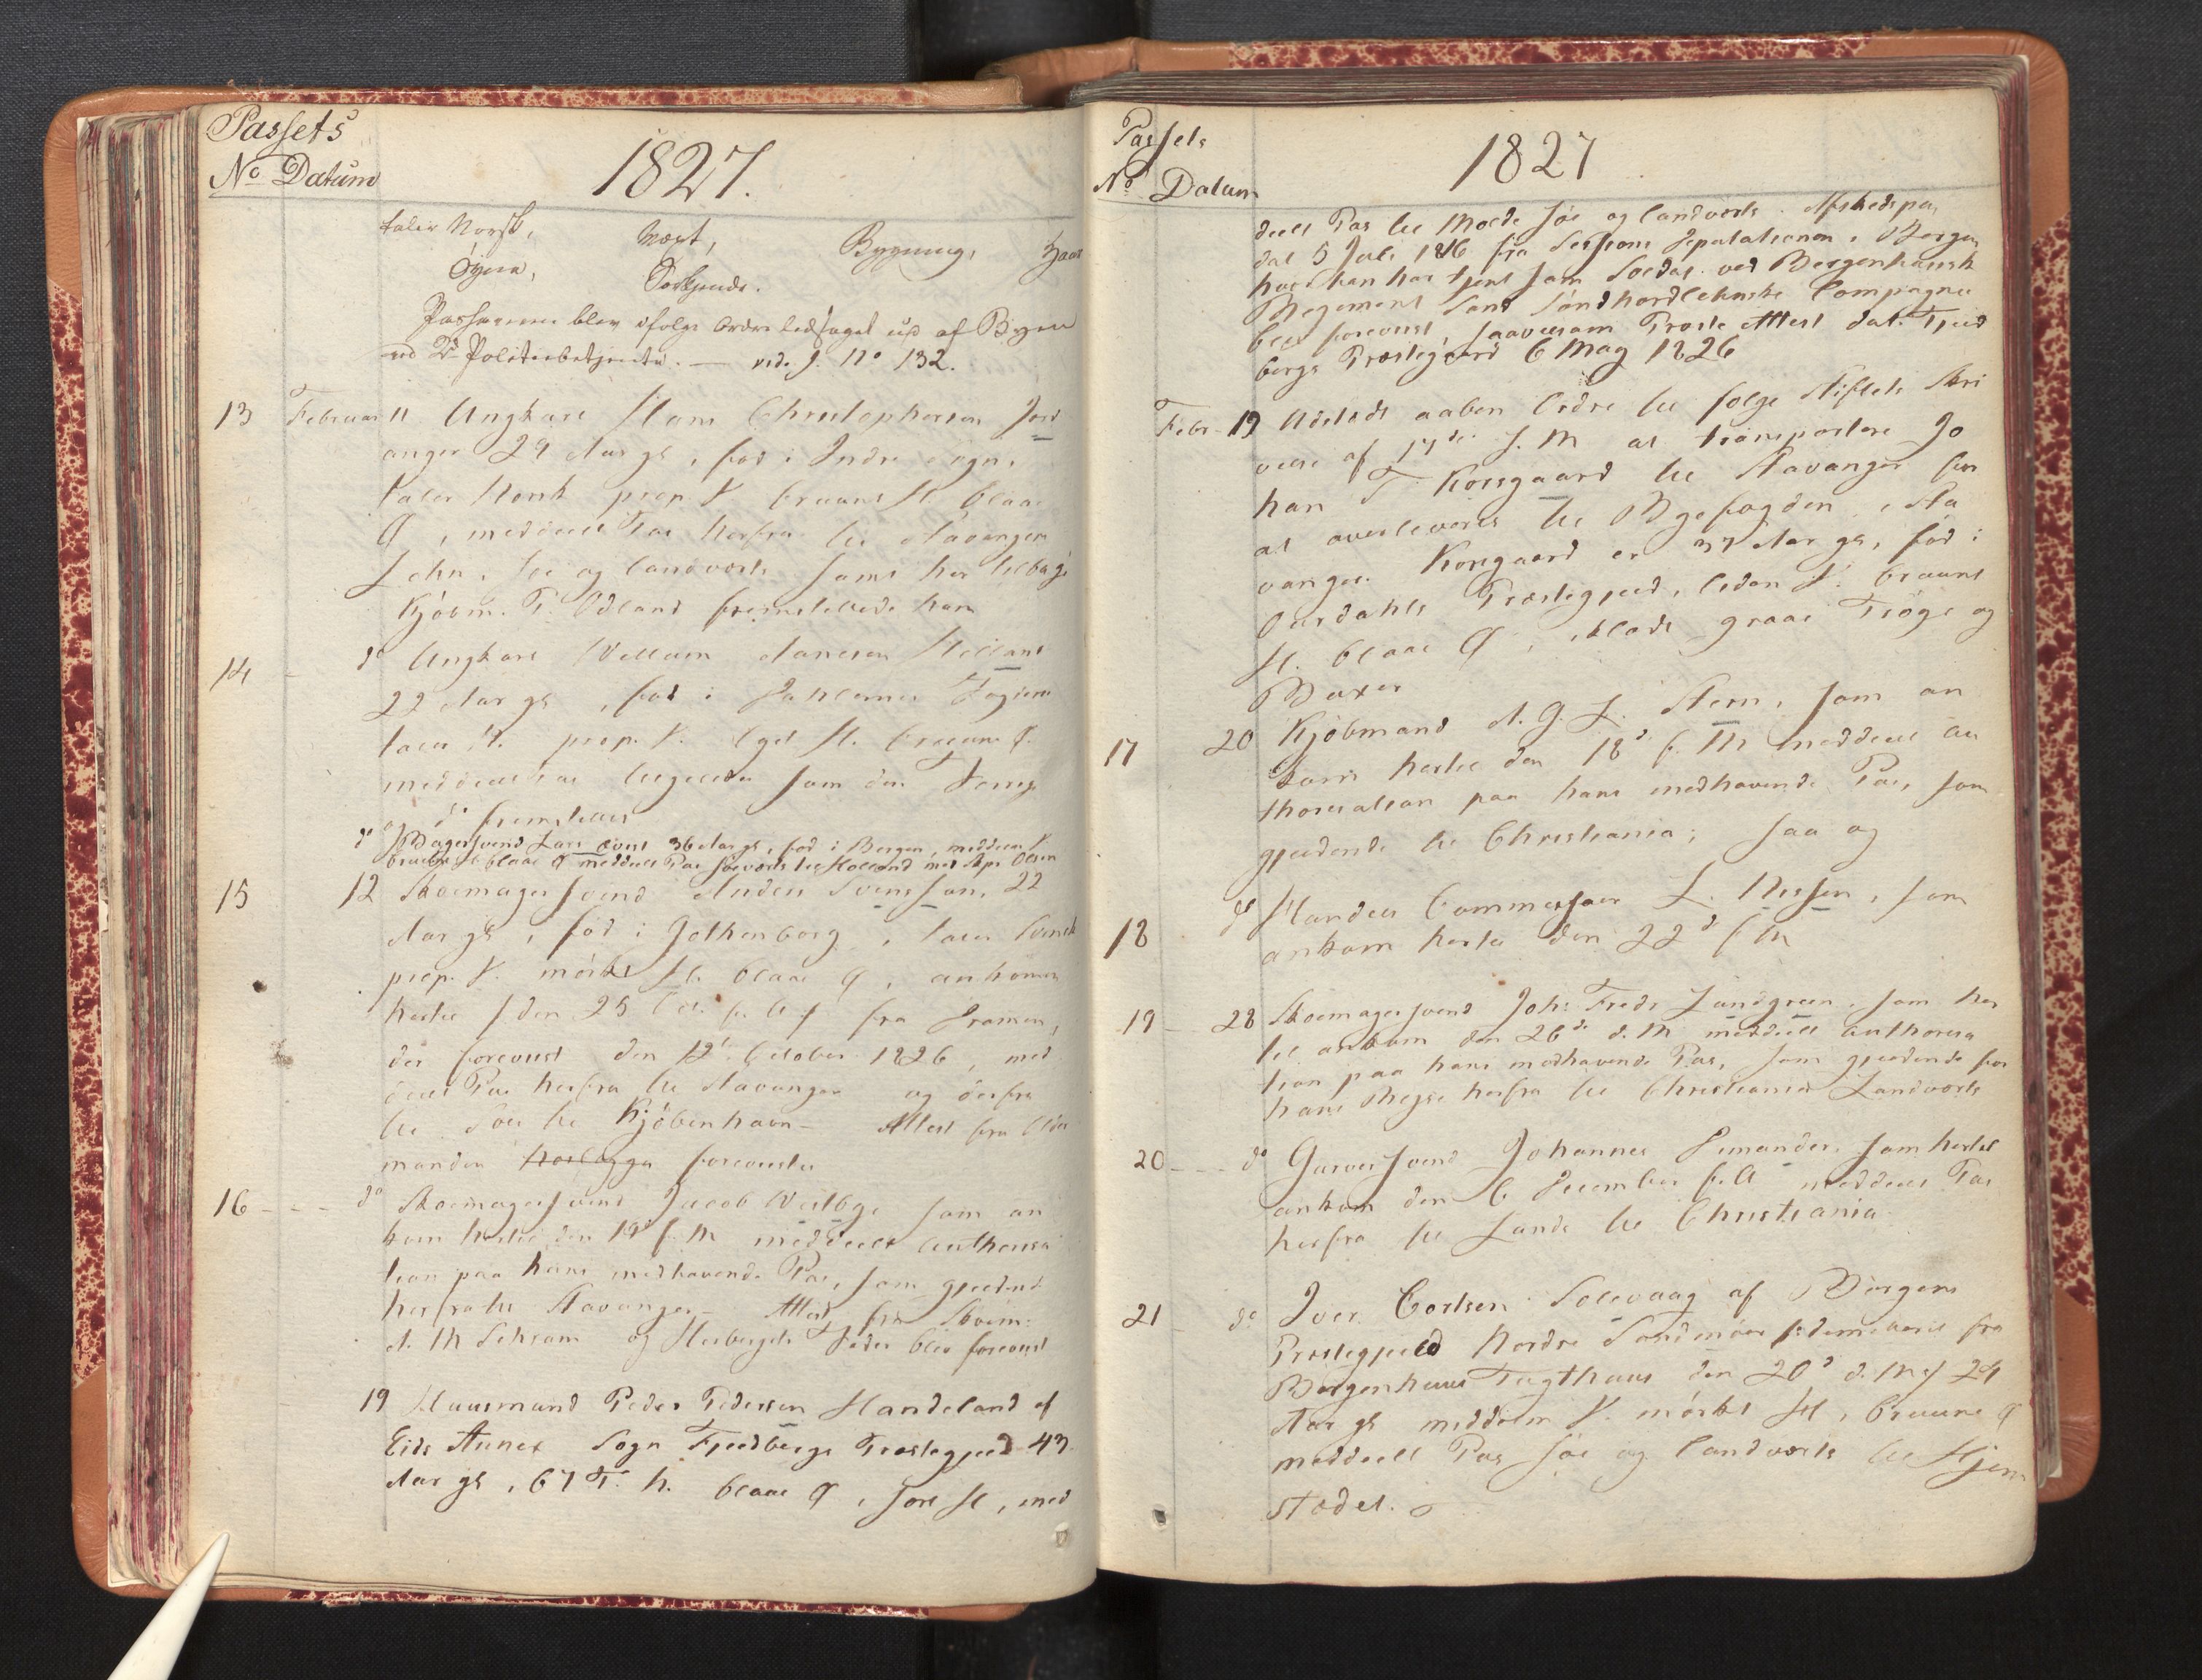 Passets
No Datum
1827.
taler Norsk, Vext, Bygning, Haar
Øyne, Torkjende.
Passeren blev ifølge Ordre ledsaget ud af Byen
ved 2de Politiebetjente. — vide J. No 132.
13 Februar 11 Ungkarl Hans Christophersen Jost
anger 29 Aar gl, fød i Indre Sogn,
taler Norsk prop. V. bruunt H. blaae
Ø, meddeelt Pas herfra til Stavanger
Lehn, Søe og landværts samt her tilbage
Kjöbm. P. Odland fremstillede ham
14 - do Ungkarl Villum Hansen Helland
22 Aar gl, fød i Jahlernes Fogderie
taler N. prop. V. lyst H. bruune Ø.
meddeelt Pas ligeledes som den Forrige
og do fremstillet
do Bagersvend Lars Evert 36 Aar gl, fød i Bergen, middels V
bruunt H blaae Ø meddeelt Pas søeværts til Holland med Skpr Olsen
15 12 Skoemagersvend Anders Svensson, 22
Aar gl, fød i Gothenborg, taler Svensk
prop. V. mörkt H. blaae Ø, ankommen
hertil den 25 Oct. f. A. fra Drammen,
der foreviist den 12t October 1826, med
deelt Pas herfra til Stavanger og derfra
til Söes til Kjöbenhavn - Attest fra Older
manden foreviistes
16 - - - do Skoemagersvend Jacob Veilbye som an
kom hertil den 19d f. M meddeelt Authorisa
tion paa hans medhavende Pas, som gjeldende
herfra til Stavanger - Attest fra Skoem:
A. M Schram og Herbergets Fader blev foreviist
19 Huusmand Peder Pedersen Handeland af
Eids Annex Sogn Fjeldbergs Præstegjeld 43
Aar gl, 67 T. h. blaae Ø, sort H, med
Passets
No Datum
1827
deelt Pas til Molde Söe og landværts. Afskedspas
dat 5 Juli 1816 fra Sessions Deputationen i Bergen
hvor han har tjent som Soldat ved Bergenhuusk
Regiment Samt Söndhordlehnske Compagnie
blev foreviist, saavelsom Præste Attest dat. Fjeld
bergs Præstegaard 6 May 1826
Febr - 19 Udstædt aaben Ordre til følge Stiftets Skri
velse af 17de d. M at transportere Jo
han T. Korsgaard til Stavanger for
at overleveres til Byefogden i Sta
vanger. Korsgaard er 37 Aar gl, fød i
Ourdahls Præstegjeld, liden V. bruunt
H. blaae Ø, klædt graae Tröye og
Buxer
17 20 Kjöbmand A. G. L. Stern, som an
kom hertil den 18d f. M meddeelt au
thorisation paa hans medhavende Pas, som
gjeldende til Christiania; saa og
18 do Handels Commessair L. Nissen, som
ankom hertil den 22d f M
19 - 28 Skoemagersvend Johs Fredr Lundgreen, som her
til ankom den 26de d. M meddeelt authorisa
tion paa hans medhavende Pas, som gjeldende for
hans Reyse herfra til Christiania Landværts
20 - - - do Garversvend Johannes Simander, som hertil
ankom den 6 December f. A meddeelt Pas
herfra til Lands til Christiania
21 - do Iver Carlsen Solevaag af Borgens
Præstegjeld Nordre Söndmöer, demitteret fra
Bergenhuus Tugthuus den 20d d. M, 24
Aar gl middelm V. mörkt H, bruune Ø
meddeelt Pas söe og landværts til Hjem
stædet.